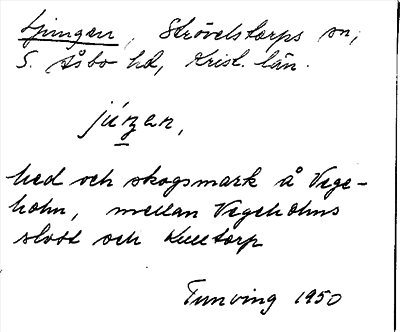 Ljungen, Strövelstorps sn,
S. Åsbo hd, Krist. län.
hed och skogsmark å Vege-
holm, mellan Vegeholms
slott och Kulltorp
Tunving 1950